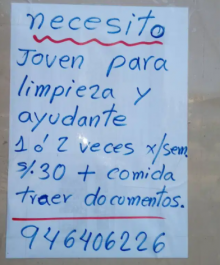 necesito
Joven para
limpieza y
ayudante
1 ó 2 veces x/sem
s/.30 + comida
traer documentos.
946406226